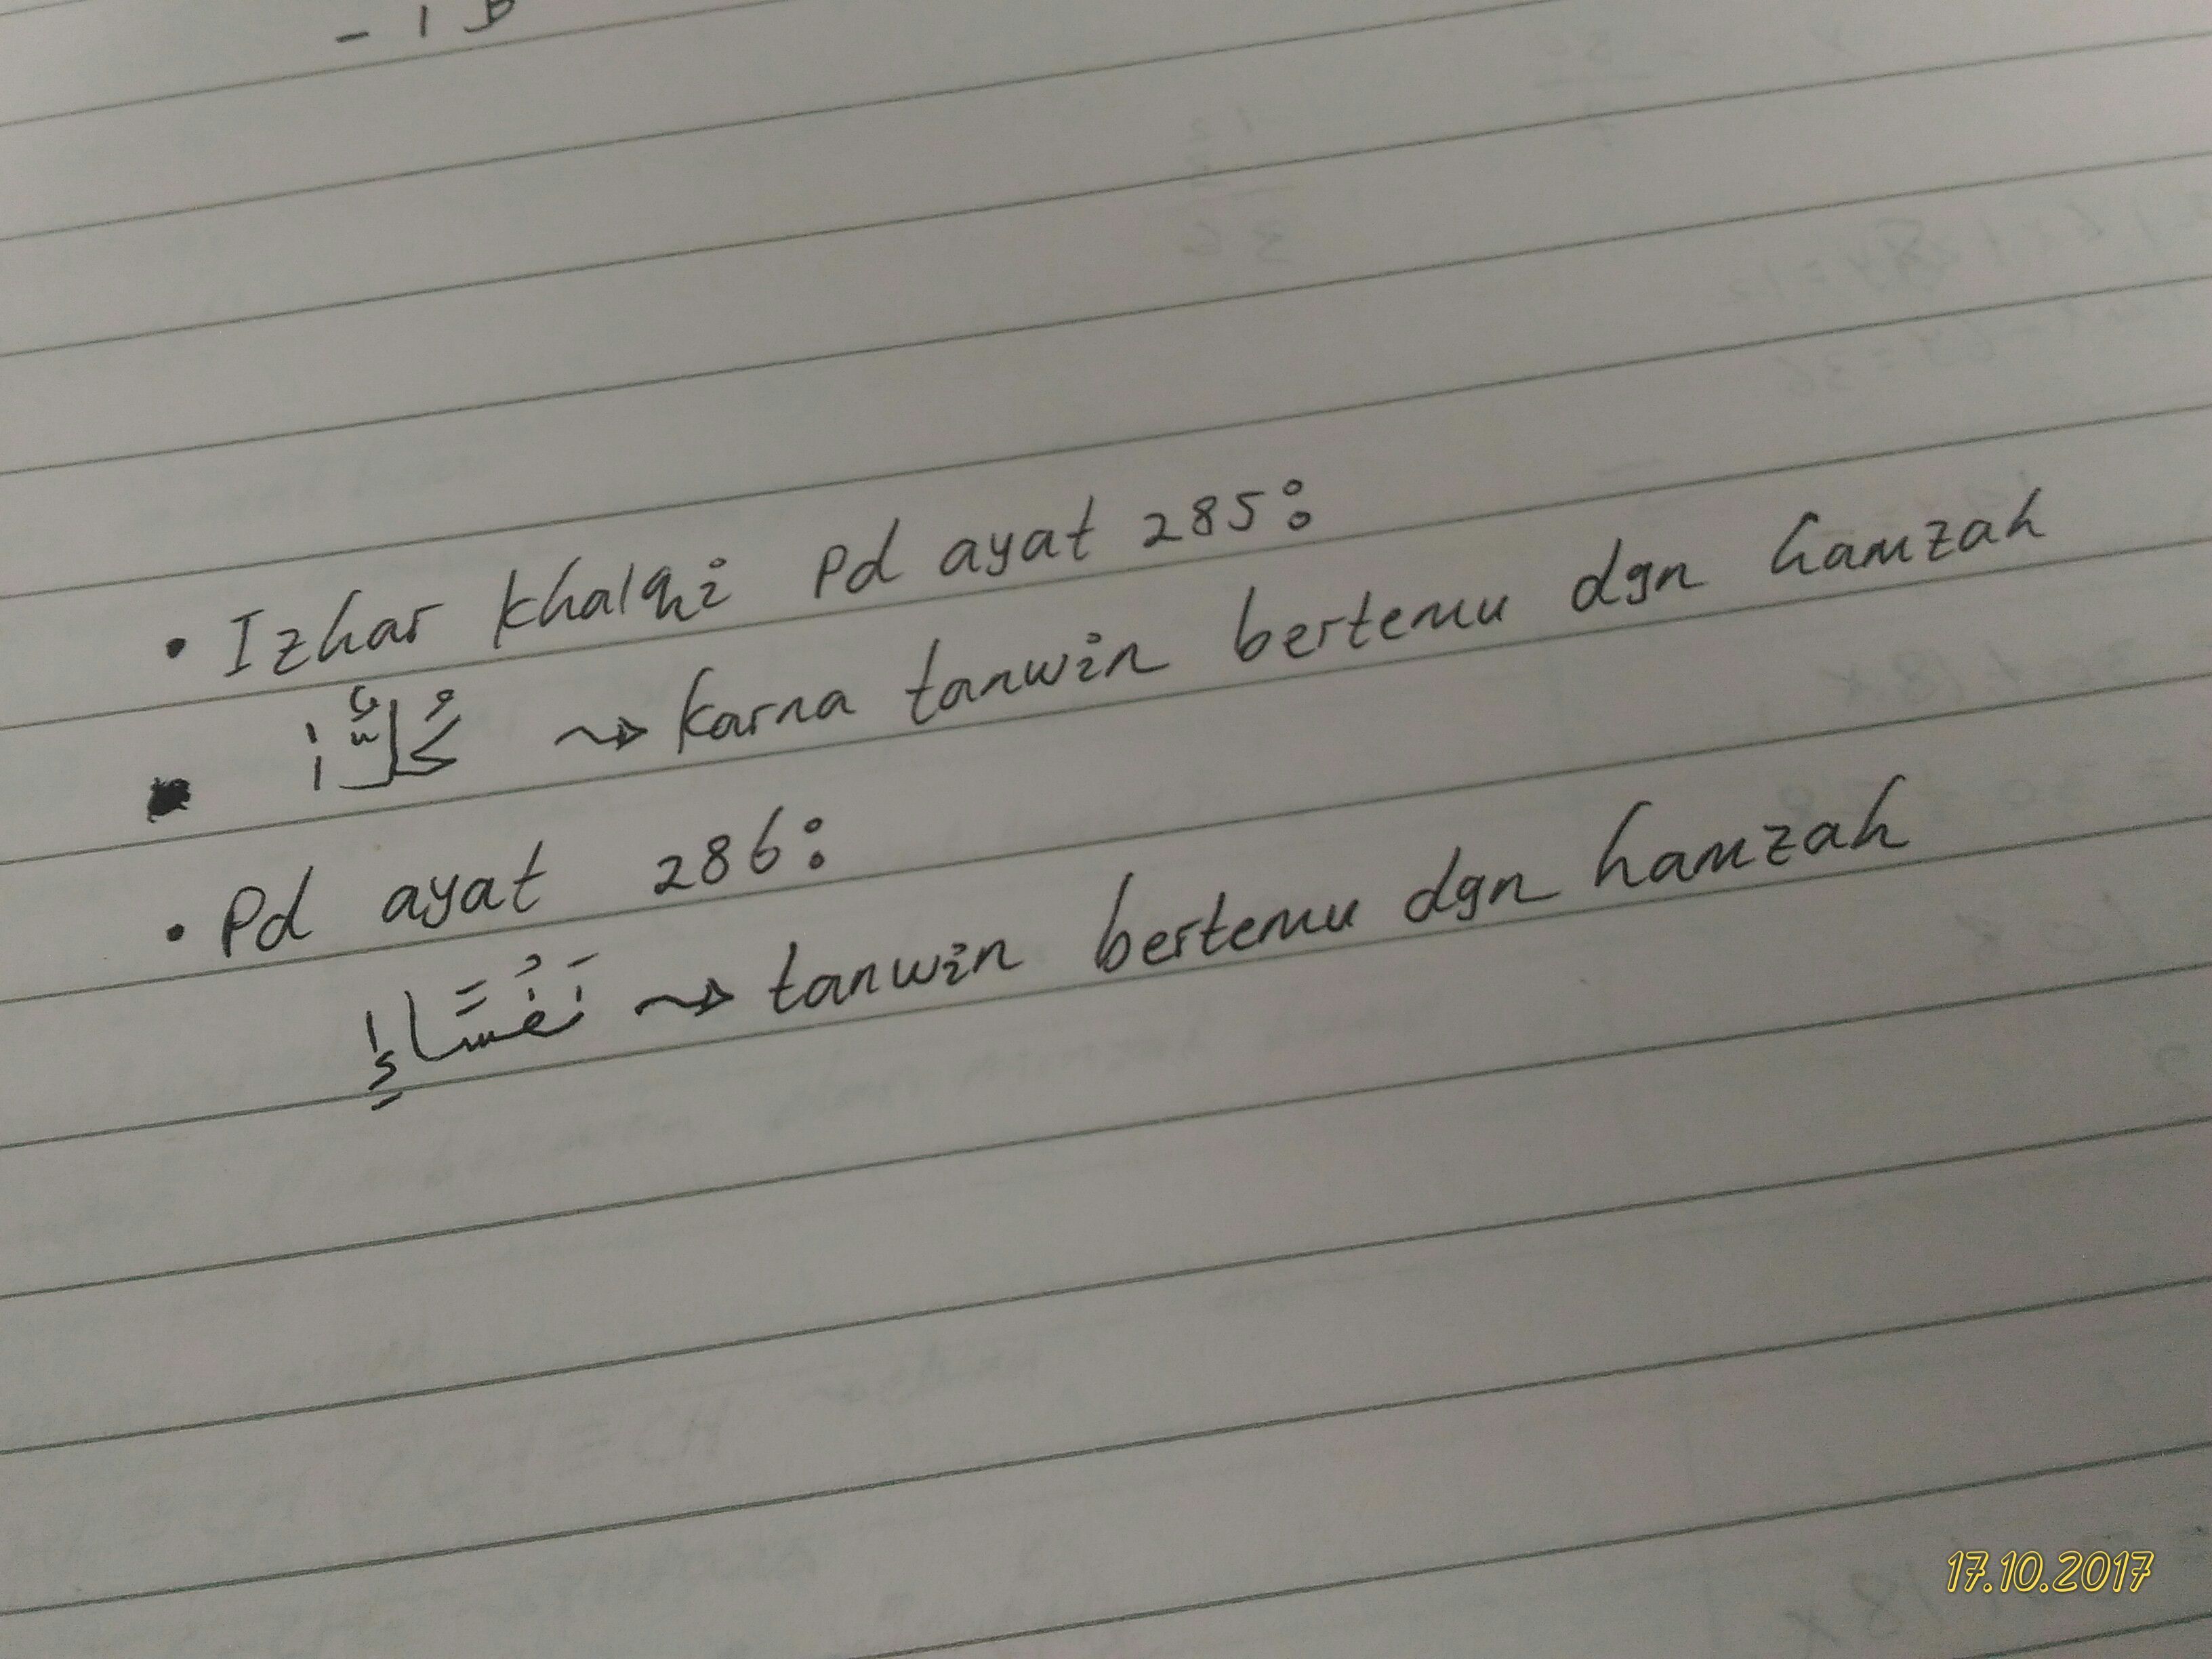 • Izhar khalqi Pd ayat 285:
كُلٌّ أ ~> karna tanwin bertemu dgn hamzah
• Pd ayat 286:
نَفْسًا إِ ~> tanwin bertemu dgn hamzah
17.10.2017